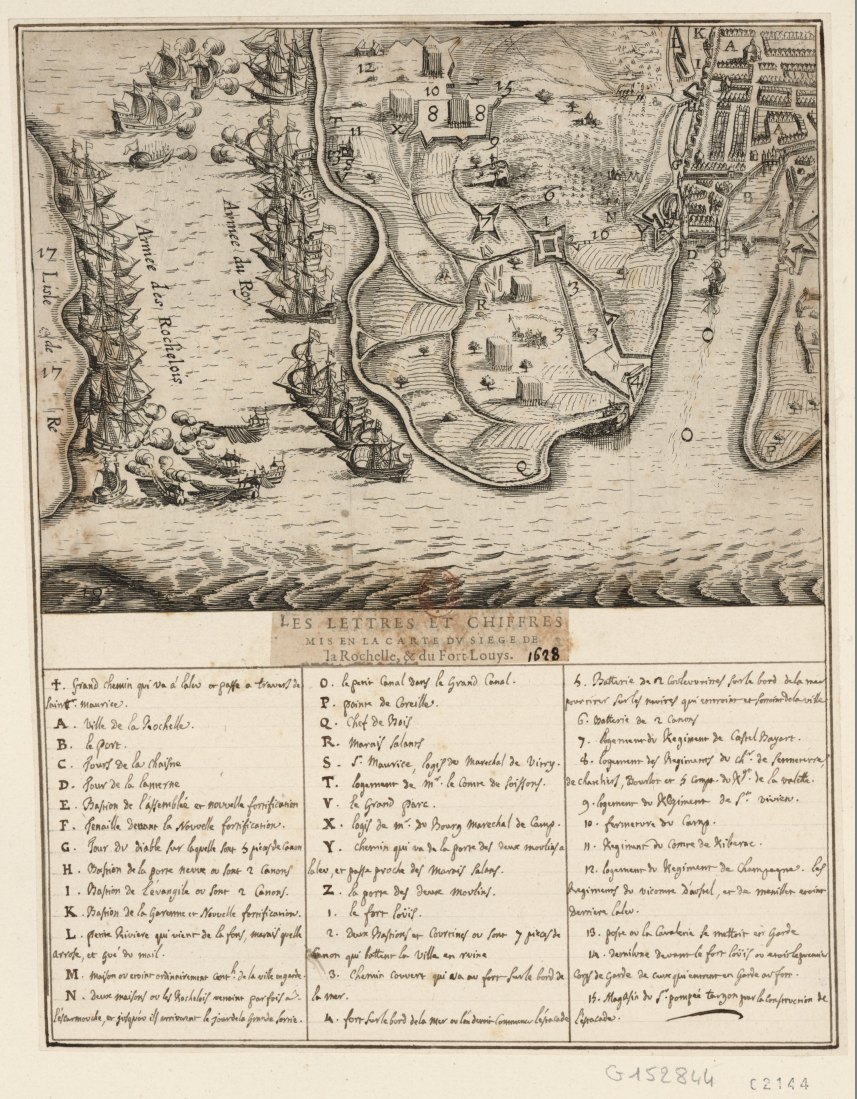 K
A
I
12
10
15
T
11
X
8 8
A
9
4
G
6
M
B
7
I
N
16
Y
D
17
Lisle
de
17
Ré
Armée des Rochelois
Armée du Roy
V
R
3
3
3
4
O
O
Q
P
19
LES LETTRES ET CHIFFRES
MIS EN LA CARTE DV SIEGE DE
la Rochelle, & du Fort Louys. 1628
+. Grand chemin qui va à Laleu et passe a travers de
Saint Maurice.
A. Ville de la Rochelle.
B. le Port.
C. Tours de la Chaisne
D. Tour de la lanterne
E. Bastion de l'assemblée et nouvelle fortification
F. Tenaille devant la Nouvelle fortification.
G. Tour du diable sur laquelle sont 5 pieces de Canon
H. Bastion de la porte neuve ou sont 2 Canons
I. Bastion de l'évangile ou sont 2 Canons.
K. Bastion de la Garenne et Nouvelle fortification.
L. petite Riviere qui vient de la fons, marais quelle
arrose, et gué du mail.
M. maison ou etoint ordinairement cent h. de la ville en garde
N. deux maisons ou les Rochelois venoint par fois a
l'escarmouche, et jusqu'ou ils arriverent le jour de la Grande Sortie.
O. le petit Canal dans le Grand Canal.
P. pointe de Coreille.
Q. Chef de Bois
R. Marais Salants
S. St. Maurice, logis du Marechal de Vitry.
T. logement de mr. le Comte de Soissons.
V. le Grand parc.
X. logis de mr. du Bourg Marechal de Camp.
Y. chemin qui va de la porte des deux moulins a
laleu, et passe proche des Marais Salans.
Z. la porte des deux Moulins.
1. le fort loüis.
2. deux Bastions et Courtines ou sont 7 pieces de
Canon qui battent la Ville en ruine
3. Chemin couvert qui va au fort sur le bord de
la mer.
4. fort sur le bord de la Mer ou l'on devoit Commencer l'estacade
5. Batterie de 2 Coulevrines sur le bord de la mer
pour tirer sur les navires qui entroint et sortoint de la ville
6. Batterie de 2 Canons
7. logement du Regiment de Castel Bayart.
8. logement des Regiments du Chr. de Senneterre,
de Chastelier, Bourlot et 5 Comp. du Rt. de la valette.
9. logement du Régiment de St. vivien.
10. fermeture du Camp.
11. Regiment du Comte de Riberac.
12. logement du Regiment de Champagne. les
Regiments du vicomte et de
derriere Laleu.
13. poste ou la Cavalerie se mettoit en Garde
14. demilune devant le fort loüis ou
Corps de Garde de ceux qui entrent en Garde au fort.
15. Magasin du Sr. pompée targon pour la Construction de
l'estacade.
G 152844
C 2144